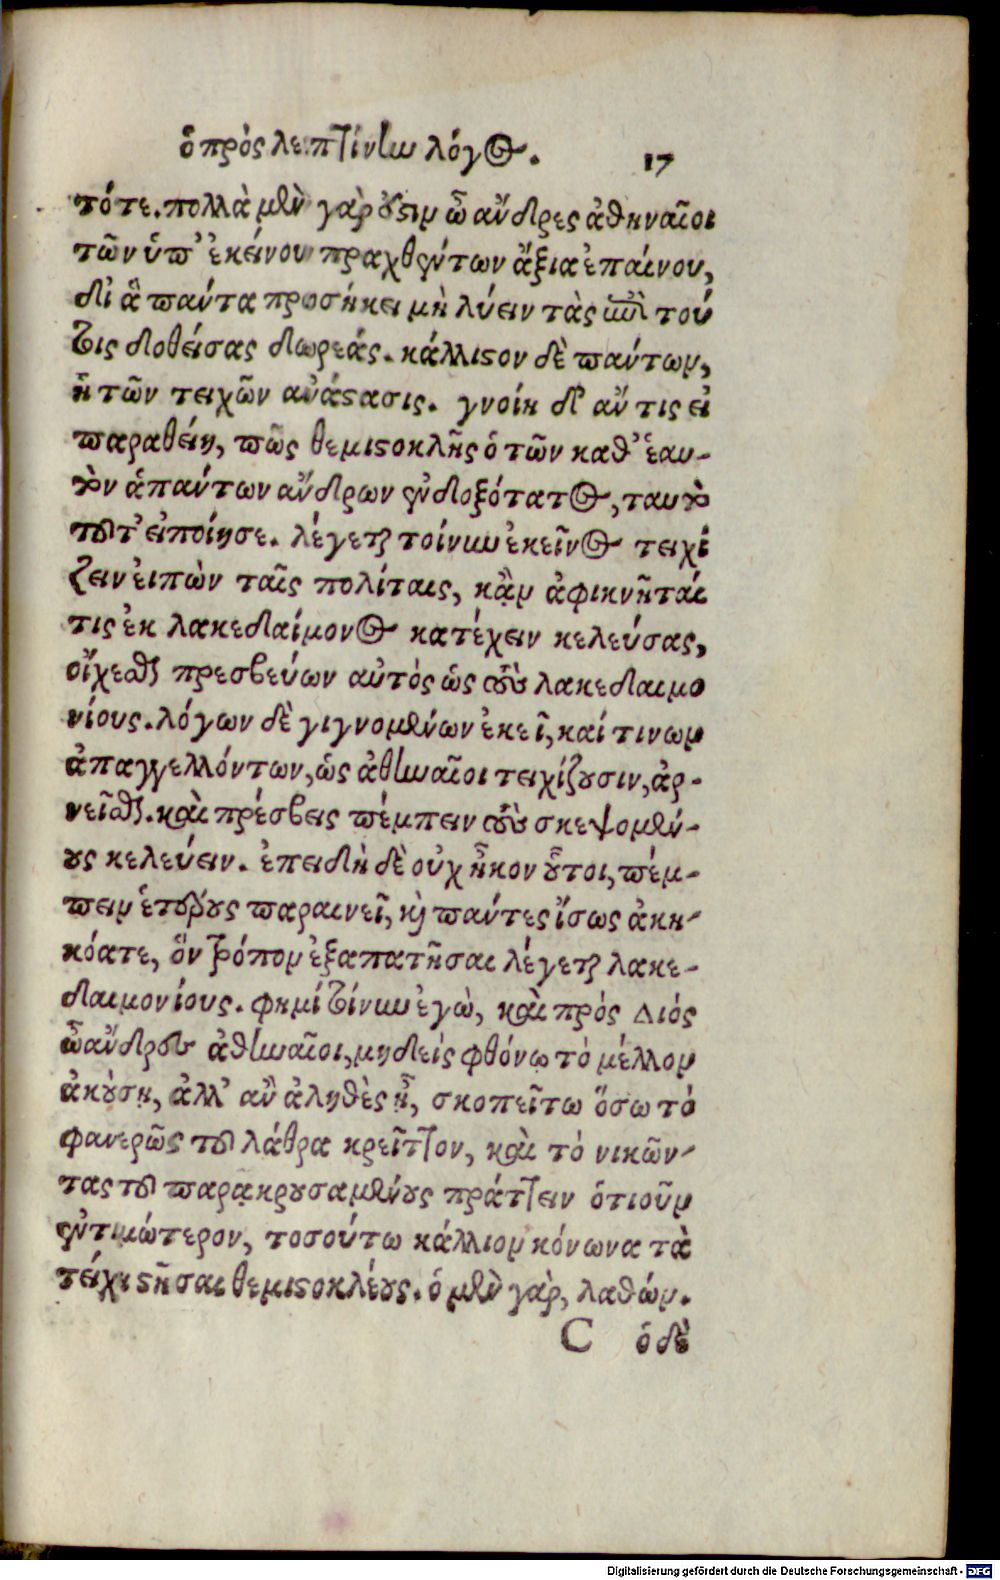 ὁ πρὸς λεπτίνην λόγος. 17
τότε. πολλὰ μὲν γὰρ οὖσιν ὦ ἄνδρες ἀθηναῖοι
τῶν ὑπ' ἐκείνου πραχθέντων ἄξια ἐπαίνου,
δι' ἃ πάντα προσήκει μὴ λύειν τὰς ἐπὶ τού
τοις δοθείσας δωρεάς. κάλλιστον δὲ πάντων,
ἡ τῶν τειχῶν ἀνάστασις. γνοίη δ' ἄν τις εἰ
παραθείη, πῶς θεμιστοκλῆς ὁ τῶν καθ' ἑαυ-
τὸν ἁπάντων ἀνδρῶν ἐνδοξότατος, ταυτὸ
τοῦτ' ἐποίησε. λέγεται τοίνυν ἐκεῖνος τειχί
ζειν εἰπὼν ταῖς πολίταις, κἂν ἀφικνῆταί
τις ἐκ λακεδαίμονος κατέχειν κελεύσας,
οἴχεσθαι πρεσβεύων αὐτὸς ὡς τοὺς λακεδαιμο
νίους. λόγων δὲ γιγνομένων ἐκεῖ, καί τινων
ἀπαγγελλόντων, ὡς ἀθηναῖοι τειχίζουσιν, ἀρ-
νεῖσθαι. καὶ πρέσβεις πέμπειν τοὺς σκεψομέν-
ους κελεύειν. ἐπειδὴ δὲ οὐχ ἧκον οὗτοι, πέμ-
πειν ἑτέρους παραινεῖ, καὶ πάντες ἴσως ἀκη-
κόατε, ὃν τρόπον ἐξαπατῆσαι λέγεται λακε-
δαιμονίους. φημί τοίνυν ἐγὼ, καὶ πρός Διός
ὦ ἄνδρες ἀθηναῖοι, μηδεὶς φθόνῳ τὸ μέλλον
ἀκούσῃ, ἀλλ' ἂν ἀληθὲς ᾖ, σκοπείτω ὅσω τὸ
φανερῶς τοῦ λάθρα κρεῖττον, καὶ τὸ νικῶν-
τας τοῦ παρακρουσαμένους πράττειν ὁτιοῦν
ἐντιμώτερον, τοσούτω κάλλιον κόνωνα τὰ
τείχη στῆσαι θεμιστοκλέους. ὁ μὲν γὰρ, λαθών.
C ὁ δὲ
Digitalisierung gefördert durch die Deutsche Forschungsgemeinschaft - DFG